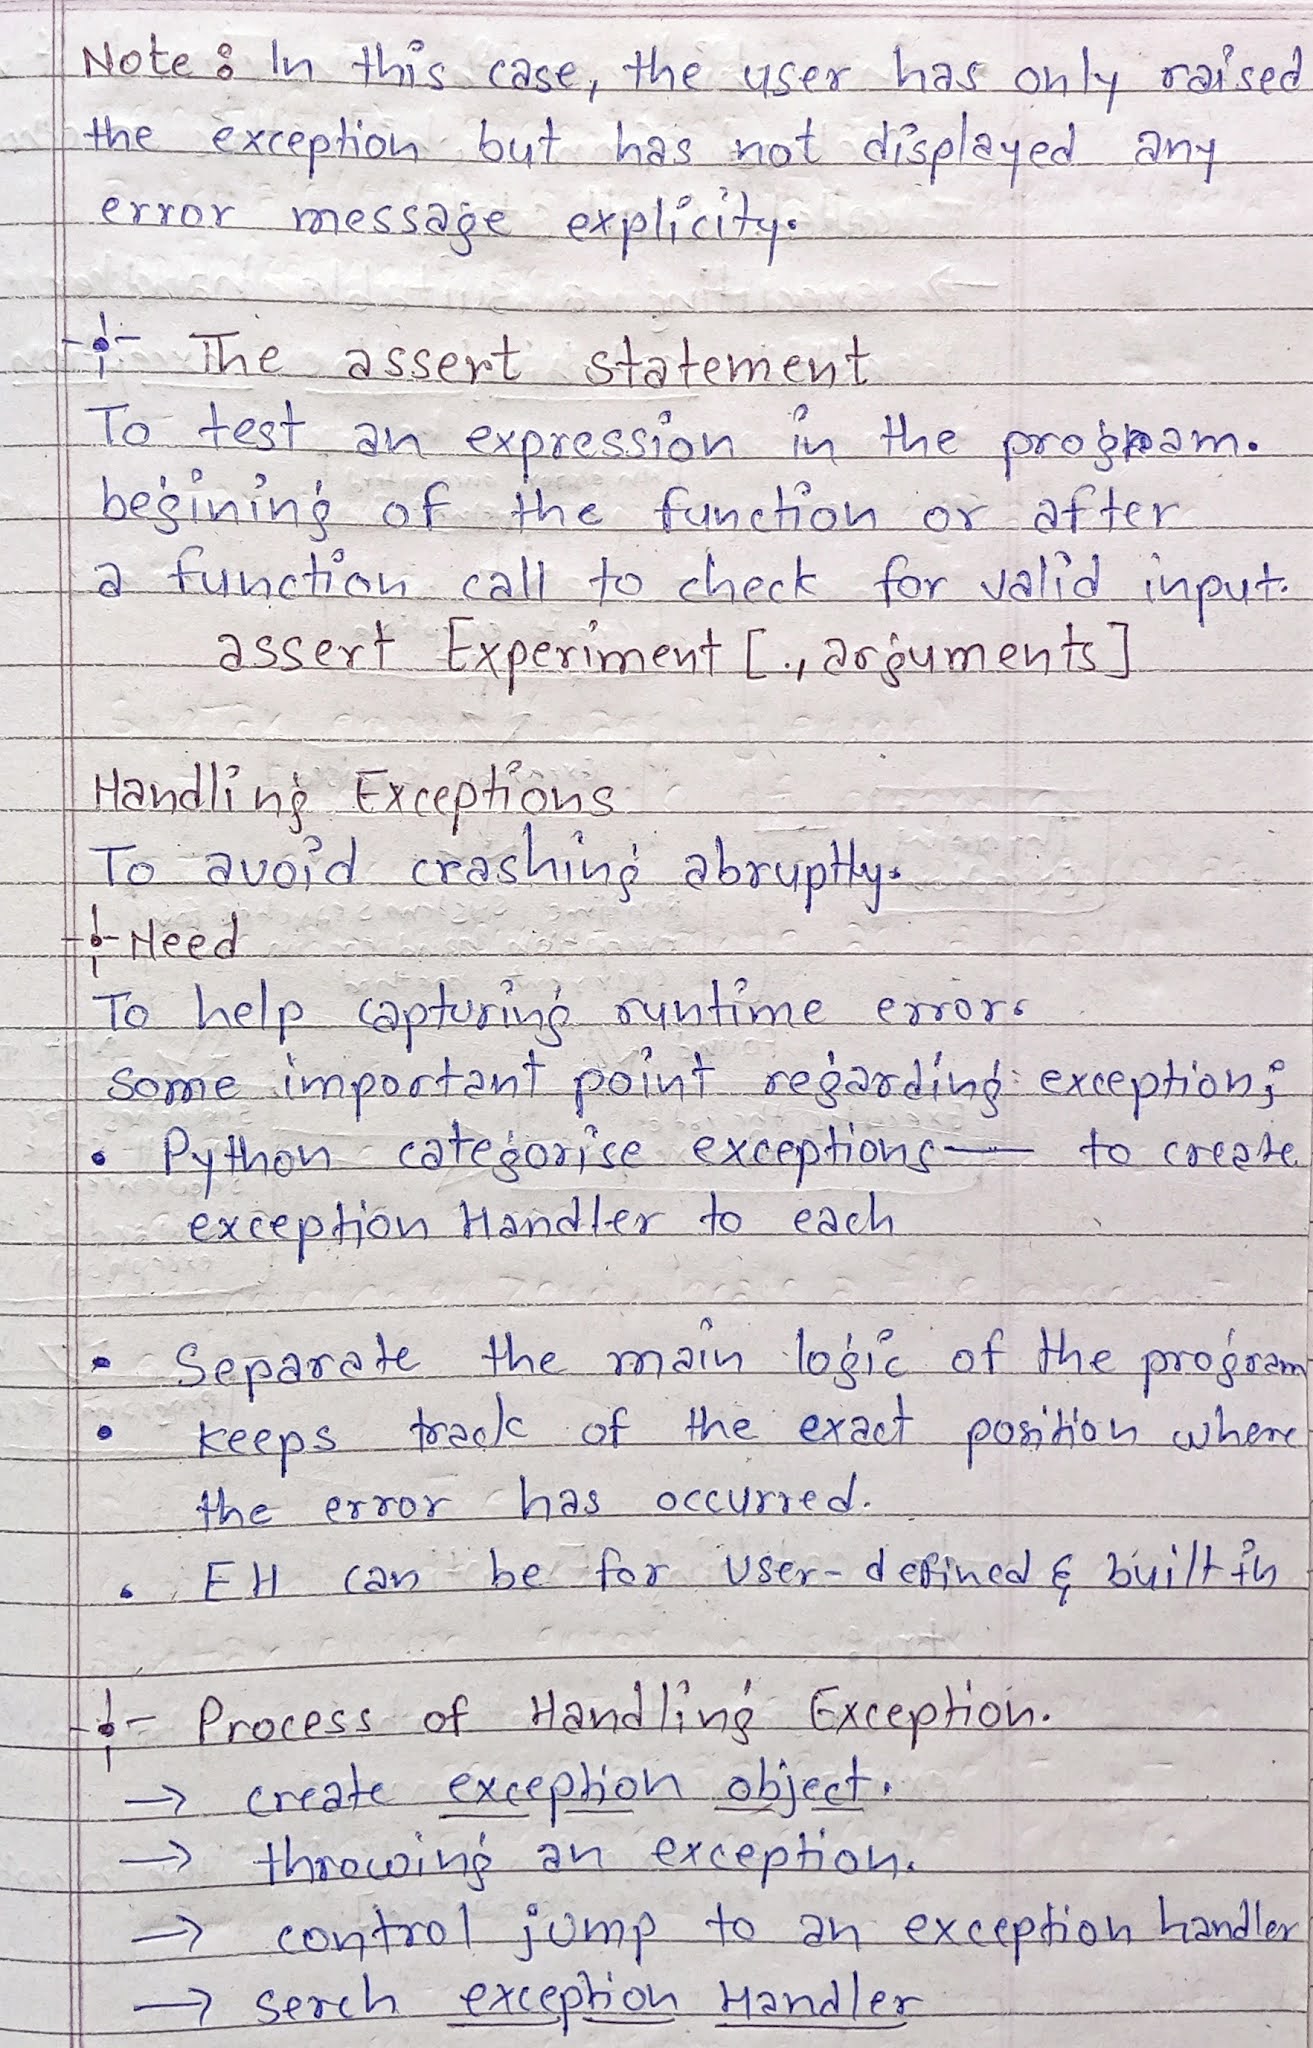 Note : In this case, the user has only raised
the exception but has not displayed any
error message explicity.
The assert statement
To test an expression in the program.
begining of the function or after
a function call to check for valid input.
assert Experiment [., arguments]
Handling Exceptions
To avoid crashing abruptly.
Need
To help capturing runtime error.
Some important point regarding exception;
• Python categorise exceptions — to create
exception Handler to each
• Separate the main logic of the program
• keeps track of the exact position where
the error has occurred.
• EH can be for user-defined & built in
Process of Handling Exception.
→ create exception object.
→ throwing an exception.
→ control jump to an exception handler
→ serch exception Handler